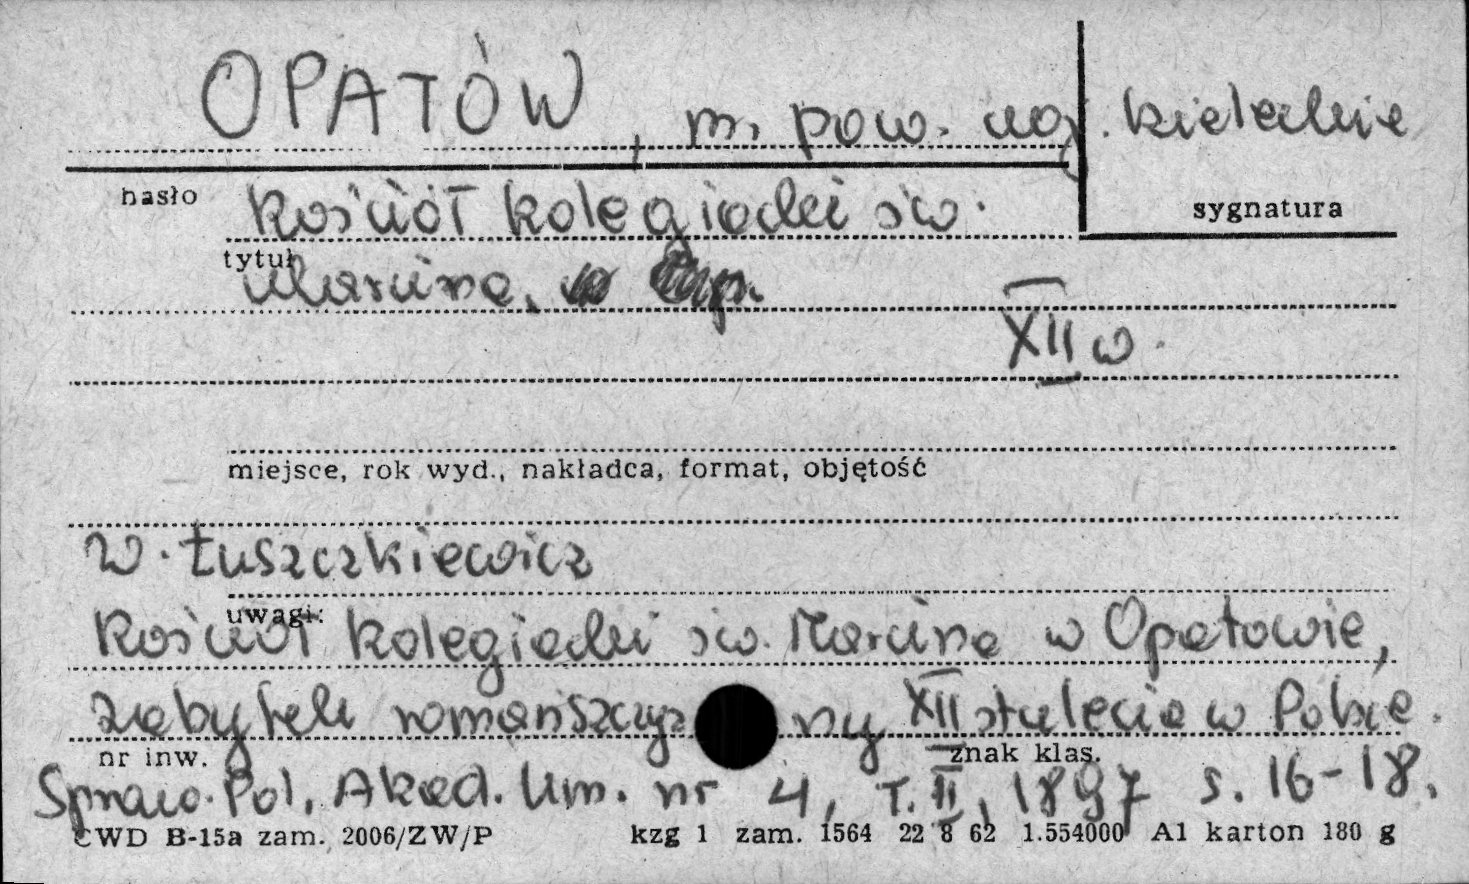 OPATÓW, m. pow. woj. kieleckie
hasło
sygnatura
Kościół kolegiacki św.
tytuł
Marcina.
XII w.
miejsce, rok wyd., nakładca, format, objętość
W. Łuszczkiewicz
uwagi:
Kościół kolegiacki św. Marcina w Opatowie,
zabytek romańszczyzny XII stulecia w Polsce.
nr inw.
znak klas.
Spraw. Pol. Akad. Um. nr 4, T. II, 1897 s. 16-18.
CWD B-15a zam. 2006/ZW/P kzg 1 zam. 1564 22 8 62 1.554000 A1 karton 180 g